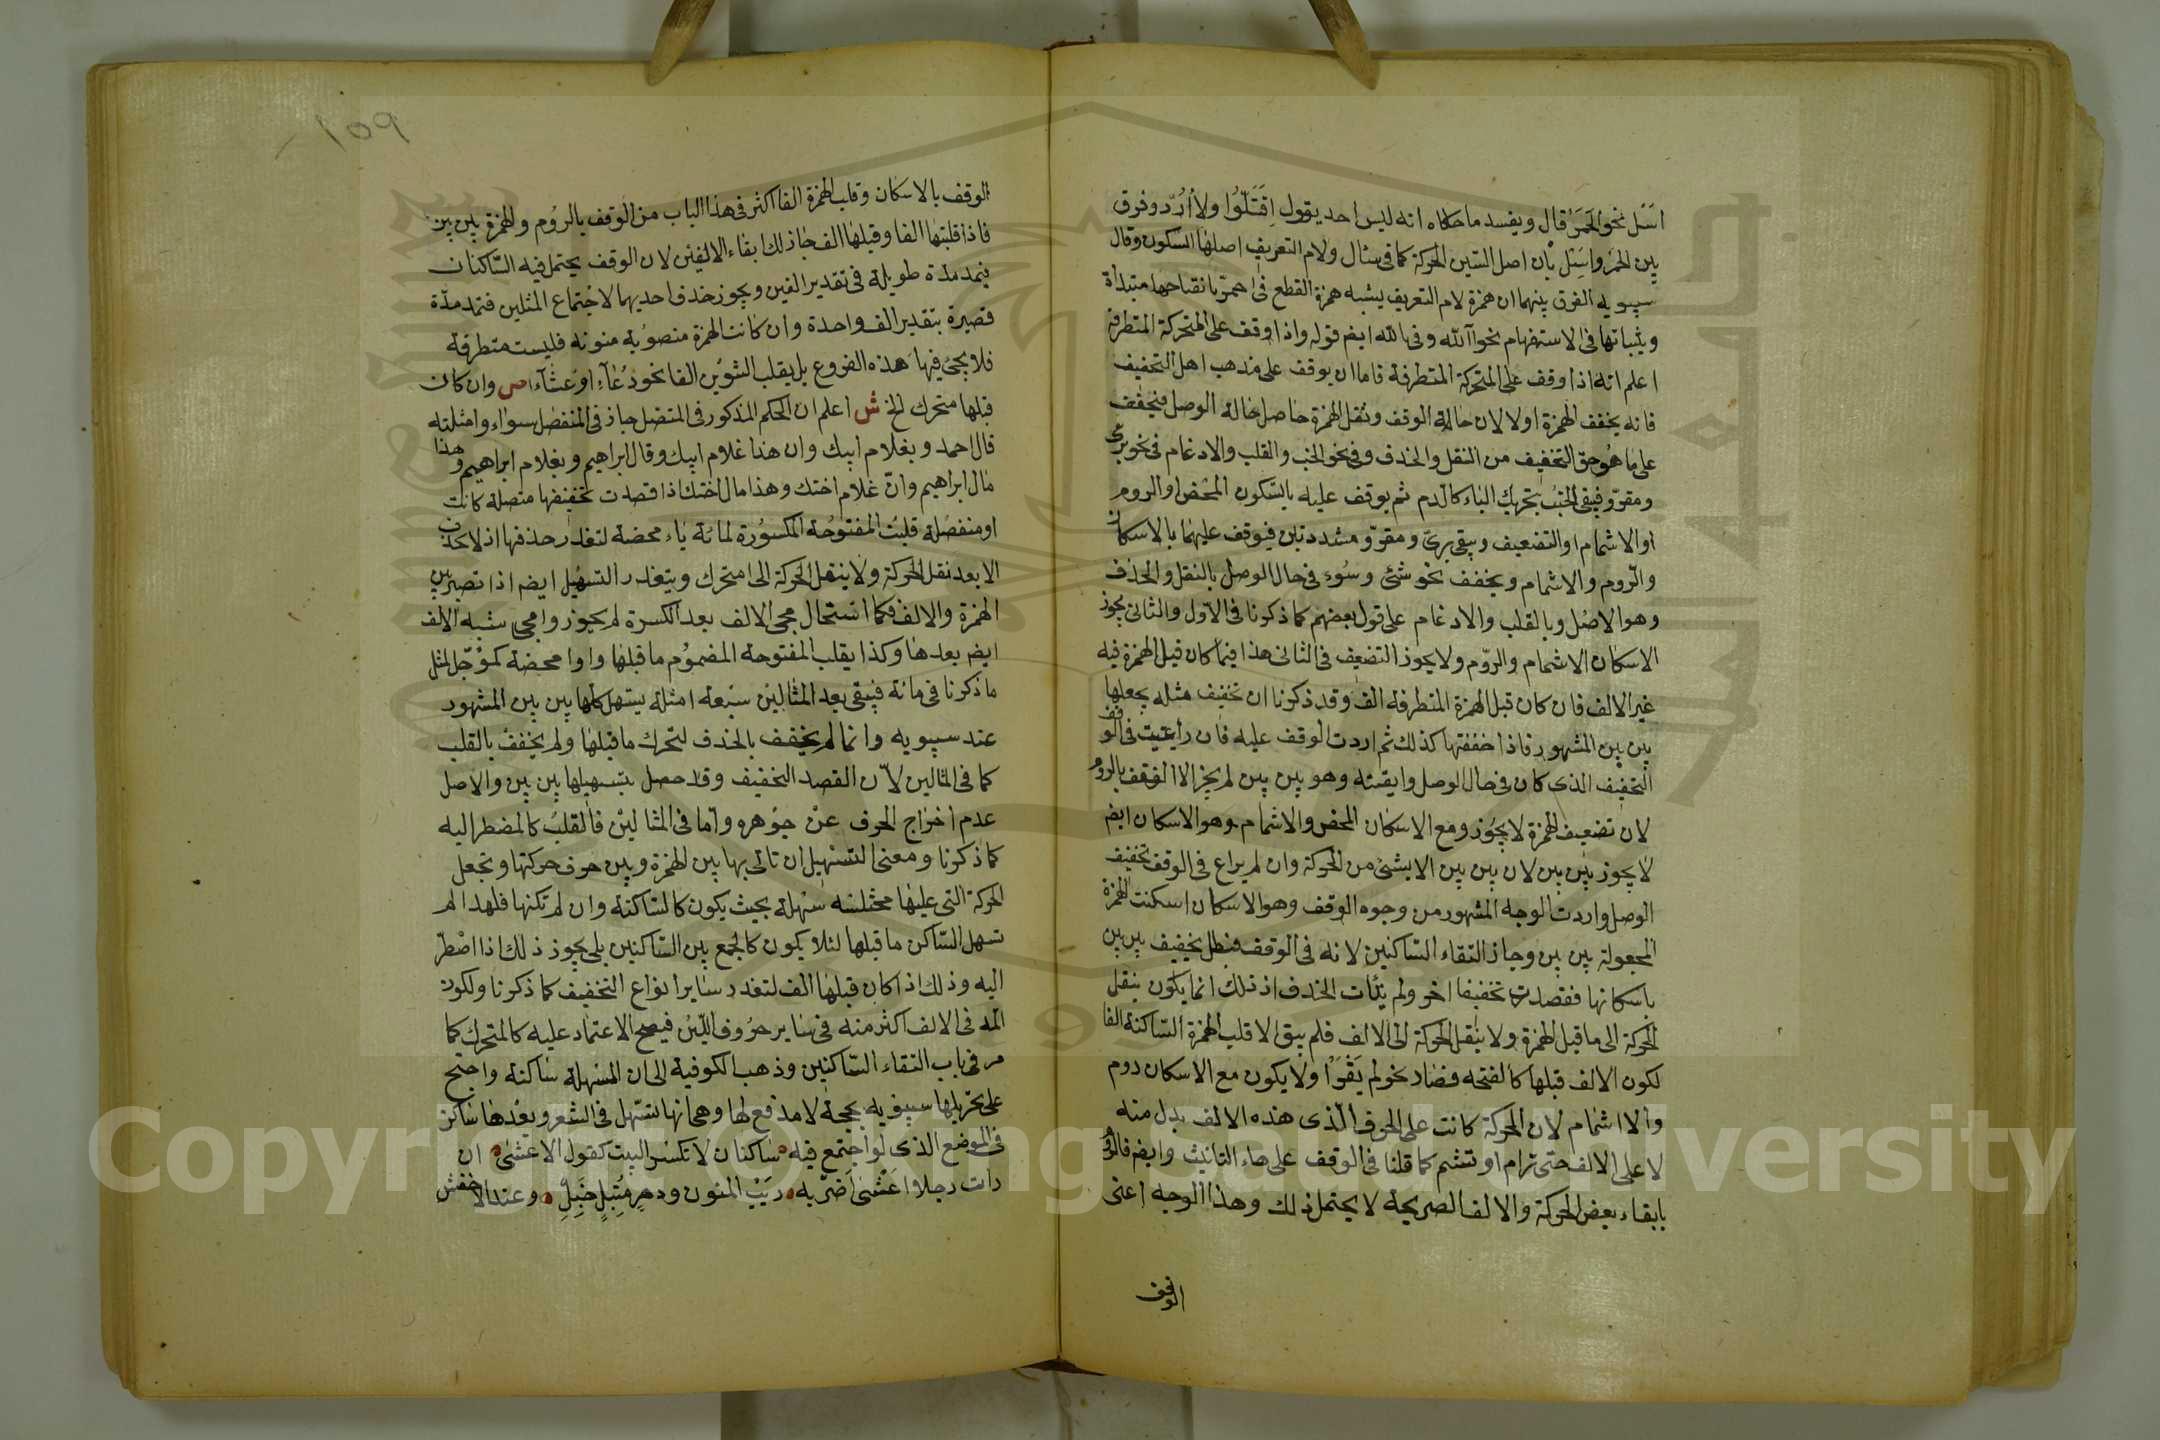 اسَل نحو الحمر قال ويفسد ما حكاه انه ليس احد يقول اِقَتَلُوا ولا اُرُدّ وفرق
بين الحمر واسَل بأن اصل السين الحركة كما فى سال ولام التعريف اصلها السكون وقال
سيبويه الفرق بينهما ان همزة لام التعريف يشبه همزة القطع فى احمر بانفتاحها مبتدأة
وبثباتها فى الاستفهام نحو آلله وفى ها لله ايضم قوله واذا وقف على المتحركة المتطرفة
اعلم انه اذا وقف على المتحركة المتطرفة فاما ان يوقف على مذهب اهل التخفيف
فانه يخفف الهمزة اولا لان حالة الوقف ونقل الهمزة حاصل حالة الوصل فيخفف
على ما هو حق التخفيف من النقل والحذف وفى نحو الخب والقلب والادغام فى نحو برئ
ومقروّ فيبقى الخب بتحريك الباء كالدم ثم يوقف عليه بالسّكون المحض او الروم
او الاشمام او التضعيف ويبقى برىّ ومقروّ مشددتين فيوقف عليهما بالاسكان
والرّوم والاشمام ويخفف نحو شئ وسُوء فى حال الوصل بالنقل والحذف
وهو الاصل وبالقلب والادغام على قول بعضهم كما ذكرنا فى الاوّل والثانى يجوز
الاسكان الاشمام والروم ولا يجوز التضعيف فى الثانى هذا فيما كان قبل الهمزة فيه
غير الالف فان كان قبل الهمزة المتطرفة الف وقد ذكرنا ان تخفيف مثله بجعلها
بين بين المشهور فاذا خففتها كذلك ثم اردت الوقف عليه فان راعيت فى الوقف
التخفيف الذى كان فى حال الوصل وابقيته وهو بين بين لم يجز الا الوقف بالروم
لان تضعيف الهمزة لا يجوز ومع الاسكان المحض والاشمام وهو الاسكان ايضم
لا يجوز بين بين لان بين بين الا بشئ من الحركة وان لم يراع فى الوقف تخفيف
الوصل واردت الوجه المشهور من وجوه الوقف وهو الاسكان اسكنت الهمزة
المجعولة بين بين وجاز التقاء الساكنين لانه فى الوقف فبطل تخفيف بين بين
باسكانها فقصدت تخفيفا اخر ولم يتأت الحذف اذ ذلك انما يكون بنقل
الحركة الى ما قبل الهمزة ولا ينقل الحركة الى الالف فلم يبق الا قلب الهمزة الساكنة الفا
لكون الالف قبلها كالفتحه فصار نحو لم يَقْرَأ ولا يكون مع الاسكان روم
والا اشمام لان الحركة كانت على الحرف الّذى هذه الالف بدل منه
لا على الالف حتى ترام او تشم كما قلنا فى الوقف على هاء التانيث وايضم فالروم
بابقاء بعض الحركة والالف الصريحة لا يحتمل ذلك وهذا الوجه اعنى
الوقف
١٥٩
الوقف بالاسكان وقلب الهمزة الفا اكثر فى هذا الباب من الوقف بالروم والهمزة بين بين
فاذا قلبتها الفا وقبلها الف جاز لك ابقاء الالفين لان الوقف يحتمل فيه السّاكنان
فيمد مدة طويلة فى تقدير الفين ويجوز حذف احديهما لاجتماع المثلين فتمد مدّة
قصيرة بتقدير الف واحدة وان كانت الهمزة منصوبة منونه فليست متطرفة
فلا يجئ فيها هذه الفروع بل يقلب التنوين الفا نحو دُعَاَء او عشآءا ص وان كان
قبلها متحرك الخ ش اعلم ان الحكم المذكور فى المتصل جاز فى المنفصل سواء وامثلته
قال احمد وبغلام ابيك وان هذا غلام ابيك وقال ابراهيم وبغلام ابراهيم وهذا
مال ابراهيم وانّ غلام اختك وهذا مال اختك اذا قصدت تخفيفها متصلة كانت
او منفصلة قلبت المفتوحة المكسورة لمائة ياء محضة لتعذر حذفها اذ لا حذف
الا بعد نقل الحركة ولا ينتقل الحركة الى متحرك ويتعذر التسهيل ايضم اذا تصير بين
الهمزة والالف فكما استحال مجى الالف بعد الكسرة لم يجوزوا مجى شبه الالف
ايضم بعدها وكذا يقلب المفتوحة المضموم ما قبلها واوا محضة كمؤجّل لمثل
ما ذكرنا فى مائة فيبقى بعد المثالين سبعة امثلة يستهل كلها بين بين المشهور
عند سيبويه وانما لم يخفف بالحذف لتحرك ما قبلها ولم يخفف بالقلب
كما فى المثالين لانّ القصد التخفيف وقد حصل بتسهيلها بين بين والاصل
عدم اخراج الحرف عن جوهره وامّا فى المثالين فالقلب كالمضطر اليه
كما ذكرنا ومعنى التسهيل ان تاتى بها بين الهمزة وبين حرف حركتها وتجعل
الحركة التى عليها مختلسه سهلة بحيث يكون كالساكنة وان لم تكنها فلهذا لم
تسهل السّاكن ما قبلها لئلا يكون كالجمع بين السّاكنين بلى يجوز ذلك اذا اضطرّ
اليه وذلك اذا كان قبلها الف لتعذر سائر انواع التخفيف كما ذكرنا ولكون
المد فى الالف اكثر منه فى سائر حروف اللّين فيصح الاعتماد عليه كالمتحرك كما
مر فى باب التقاء السّاكنين وذهب الكوفية الى ان المسهلة ساكنة واحتج
على تحريكها سيبويه بحجة لا مدفع لها وهى انها تسهل فى الشعر وبعدها ساكن
فى الموضع الذى لو اجتمع فيه ساكنان لا تكسر البيت كقول الاعشىٰ ان
رات رجلا اعشىٰ اَضَرّ به رَيْبُ المنون ودهرٍ مُتبلٍ خَبِلٍ وعند الاخفش